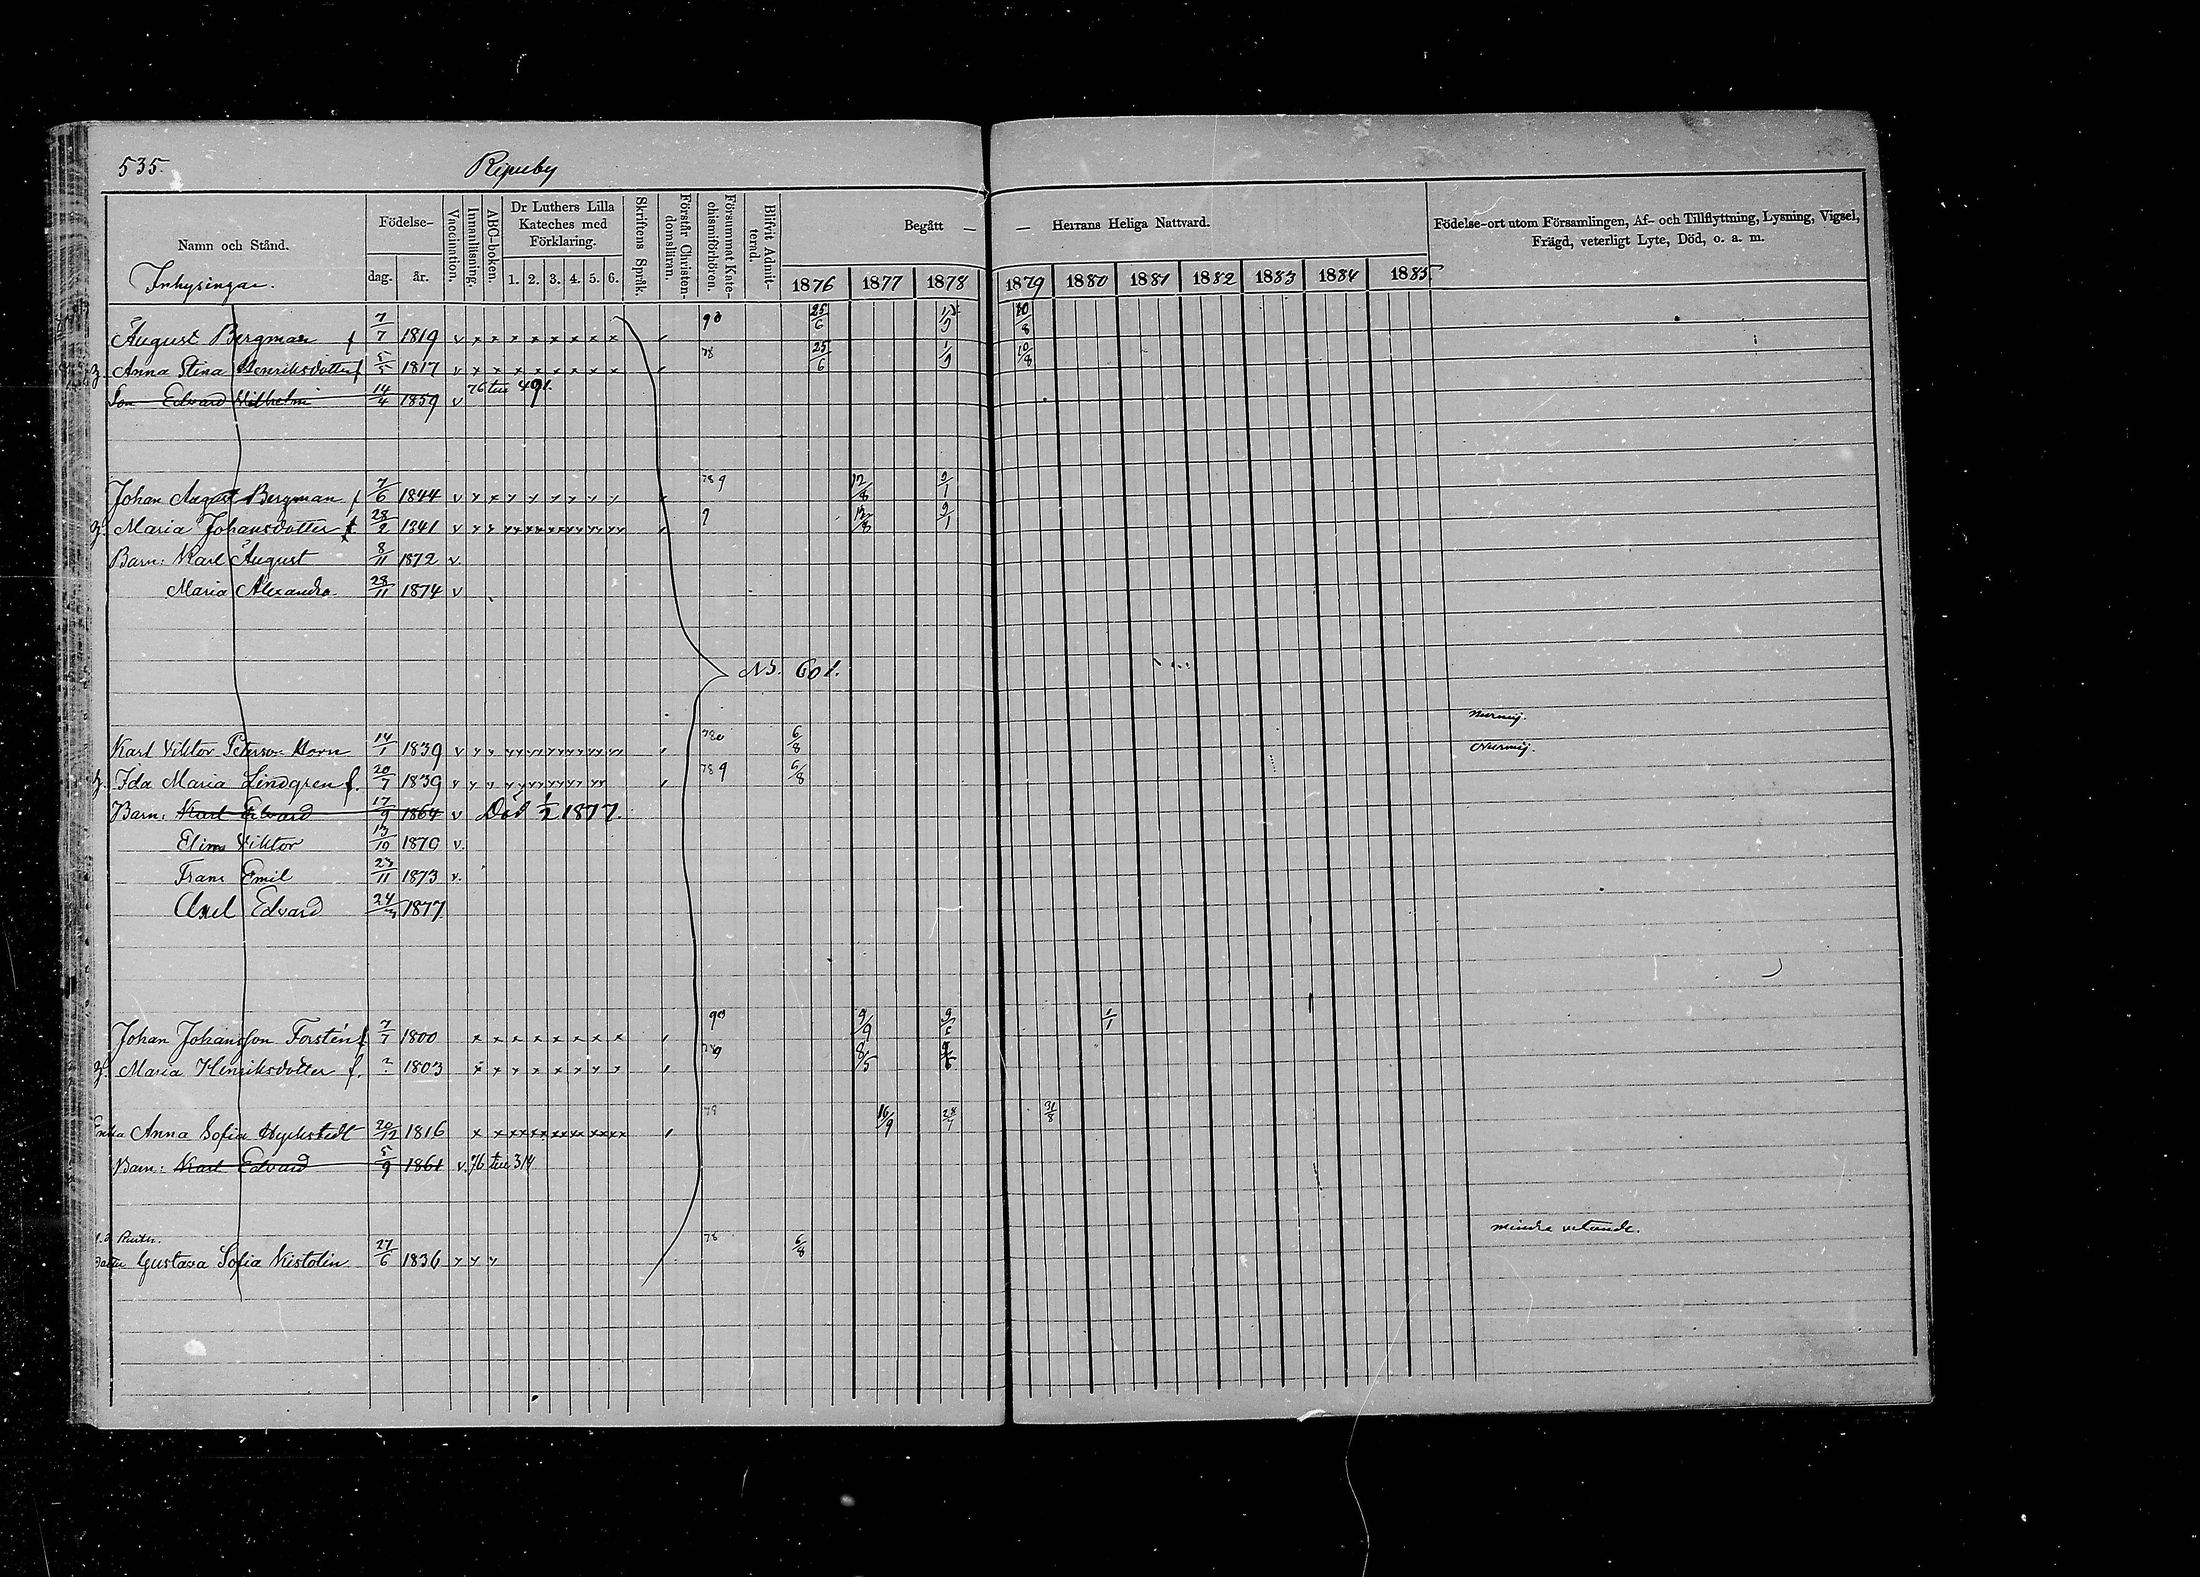 535.
Ripuby
Namn och Stånd.
Födelse-
dag.
år.
Vaccination.
Innanläsning.
ABC-boken.
Dr Luthers Lilla
Kateches med
Förklaring.
1. 2. 3. 4. 5. 6.
Skriftens Språk.
Förstår Christen-
domsläran.
Försummat Kate-
chismiförhören.
Blifvit Admit-
terad.
Begått — — Herrans Heliga Nattvard.
1876 1877 1878 1879 1880 1881 1882 1883 1884 1885
Födelse-ort utom Församlingen, Af- och Tillflyttning, Lysning, Vigsel,
Frägd, veterligt Lyte, Död, o. a. m.
Inhysingar.
August Bergman f 7/7 1819 v x x x x x x x x 25/6 10/8
Anna Stina Henriksdotter f 5/5 1817 v x x x x x x x x 78 25/6 1/9 10/8
Son Edvard Vilhelm 14/4 1859 v 76 tui 491.
Johan August Bergman f 7/6 1844 v 78 9 12/8 9/1
h. Maria Johansdotter f 28/2 1841 v 9 12/8 9/1
Barn: Karl August 8/11 1872 v.
Maria Alexandra 28/11 1874 v
N3. 601.
Karl Viktor Peterson Horn 14/1 1839 v 6/8
h. Ida Maria Lindgren f. 20/7 1839 v 78 9 6/8
Barn: Karl Edvard 17/9 1864 v Död 1/2 1877.
Viktor 13/10 1870 v.
Frans Emil 23/11 1873 v.
Axel Edvard 1877
Johan Johansson Forstén f 7/7 1800 x x x x x x x x 9/9 1/1
h. Maria Henriksdotter f. ? 1803 8/5 9/6
Enka Anna Sofia 20/12 1816 78 16/9 31/8
Barn: Karl Edvard 5/9 1861 v. 76 tui 314
mindre vetande.
Gustava Sofia 27/6 1836 78 6/8